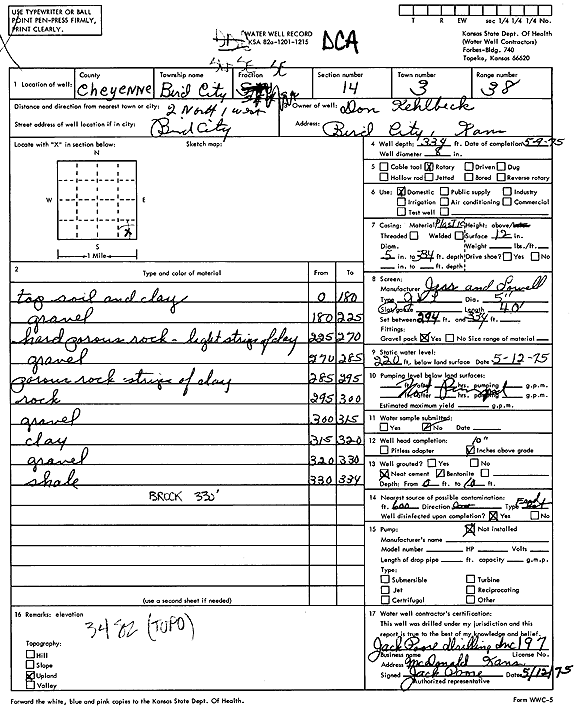 USE TYPEWRITER OR BALL
POINT PEN-PRESS FIRMLY,
PRINT CLEARLY.
WATER WELL RECORD
KSA 82a-1201-1215
DCA
T R EW sec 1/4 1/4 1/4 No.
Kansas State Dept. Of Health
(Water Well Contractors)
Forbes-Bldg. 740
Topeka, Kansas 66620
1 Location of well:
County
Cheyenne
Township name
Bird City
Fraction
Section number
14
Town number
3
Range number
38
Distance and direction from nearest town or city: 2 North 1 west
Street address of well location if in city: Bird City
Owner of well: Don Kehlbeck
Address: Bird City, Kans
Locate with "X" in section below:
Sketch map:
N
W
E
S
1 Mile
X
4 Well depth: 334 ft. Date of completion 5-9-75
Well diameter 8 in.
5 Cable tool X Rotary Driven Dug
Hollow rod Jetted Bored Reverse rotary
6 Use: X Domestic Public supply Industry
Irrigation Air conditioning Commercial
Test well
7 Casing: Material Plastic Height: above/below
Threaded Welded Surface 12 in.
Diam. Weight lbs./ft.
5 in. to 334 ft. depth Drive shoe? Yes No
in. to ft. depth
8 Screen:
Manufacturer Jess and Lowell
Type Dia. 5"
Slot/gauze Length 40
Set between 294 ft. and 334 ft.
Fittings:
Gravel pack X Yes No Size range of material
9 Static water level:
220 ft. below land surface Date 5-12-75
10 Pumping level below land surfaces:
ft. after hrs. pumping g.p.m.
ft. after hrs. pumping g.p.m.
Estimated maximum yield g.p.m.
11 Water sample submitted:
Yes X No Date
12 Well head completion: 10"
Pitless adapter X Inches above grade
13 Well grouted? Yes No
X Neat cement Bentonite
Depth: From 0 ft. to 10 ft.
14 Nearest source of possible contamination:
ft. 600 Direction Type Feed
Well disinfected upon completion? X Yes No
15 Pump: X Not installed
Manufacturer's name
Model number HP Volts
Length of drop pipe ft. capacity g.m.p.
Type:
Submersible Turbine
Jet Reciprocating
Centrifugal Other
2 Type and color of material From To
top soil and clay 0 180
gravel 180 225
hard porous rock - light strips of clay 225 270
gravel 270 285
porous rock strips of clay 285 295
rock 295 300
gravel 300 315
clay 315 320
gravel 320 330
shale 330 334
BROCK 330'
(use a second sheet if needed)
16 Remarks: elevation
3482 (TOPO)
Topography:
Hill
Slope
X Upland
Valley
17 Water well contractor's certification:
This well was drilled under my jurisdiction and this
report is true to the best of my knowledge and belief.
Jack Poore Drilling Inc 197
Business name License No.
Address McDonald Kans
Signed Jack Poore Date 5/12/75
Authorized representative
Forward the white, blue and pink copies to the Kansas State Dept. Of Health.
Form WWC-5